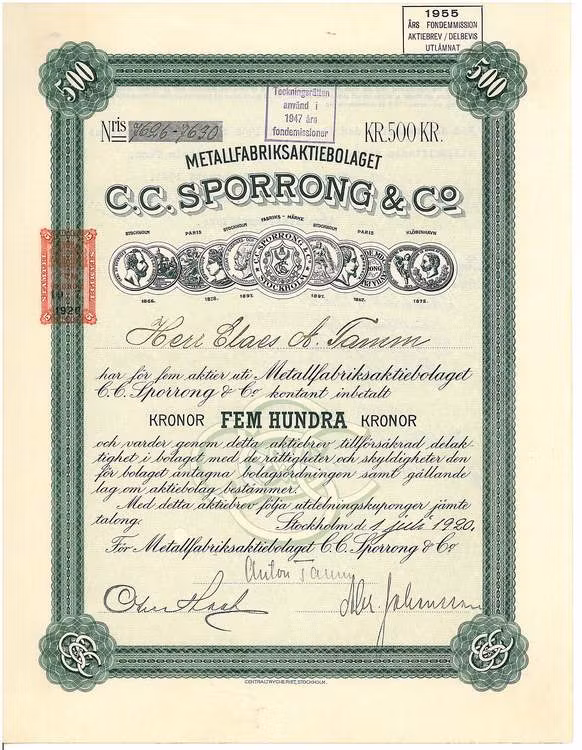 1955
ÅRS FONDEMISSION
AKTIEBREV / DELBEVIS
UTLÄMNAT
500
500
Teckningsrätten
använd i
1947 års
fondemissioner
Nris 7626-7630
KR.500 KR.
METALLFABRIKSAKTIEBOLAGET
C.C. SPORRONG & Co
STOCKHOLM PARIS STOCKHOLM FABRIKS-MÄRKE STOCKHOLM PARIS KJÖBENHAVN
C.C. SPORRONG & Co
STOCKHOLM
1866. 1878. 1897. 1897. 1867. 1872.
1920
Herr Claes A. Tamm
har för fem aktier uti Metallfabriksaktiebolaget
C.C. Sporrong & Co kontant inbetalt
KRONOR FEM HUNDRA KRONOR
och varder genom detta aktiebrev tillförsäkrad delak-
tighet i bolaget med de rättigheter och skyldigheter den
för bolaget antagna bolagsordningen samt gällande
lag om aktiebolag bestämmer.
Med detta aktiebrev följa utdelningskuponger jämte
talong.
Stockholm d. 1 juli 1920.
För Metallfabriksaktiebolaget C.C. Sporrong & Co
Anton Tamm
CENTRALTRYCKERIET, STOCKHOLM.